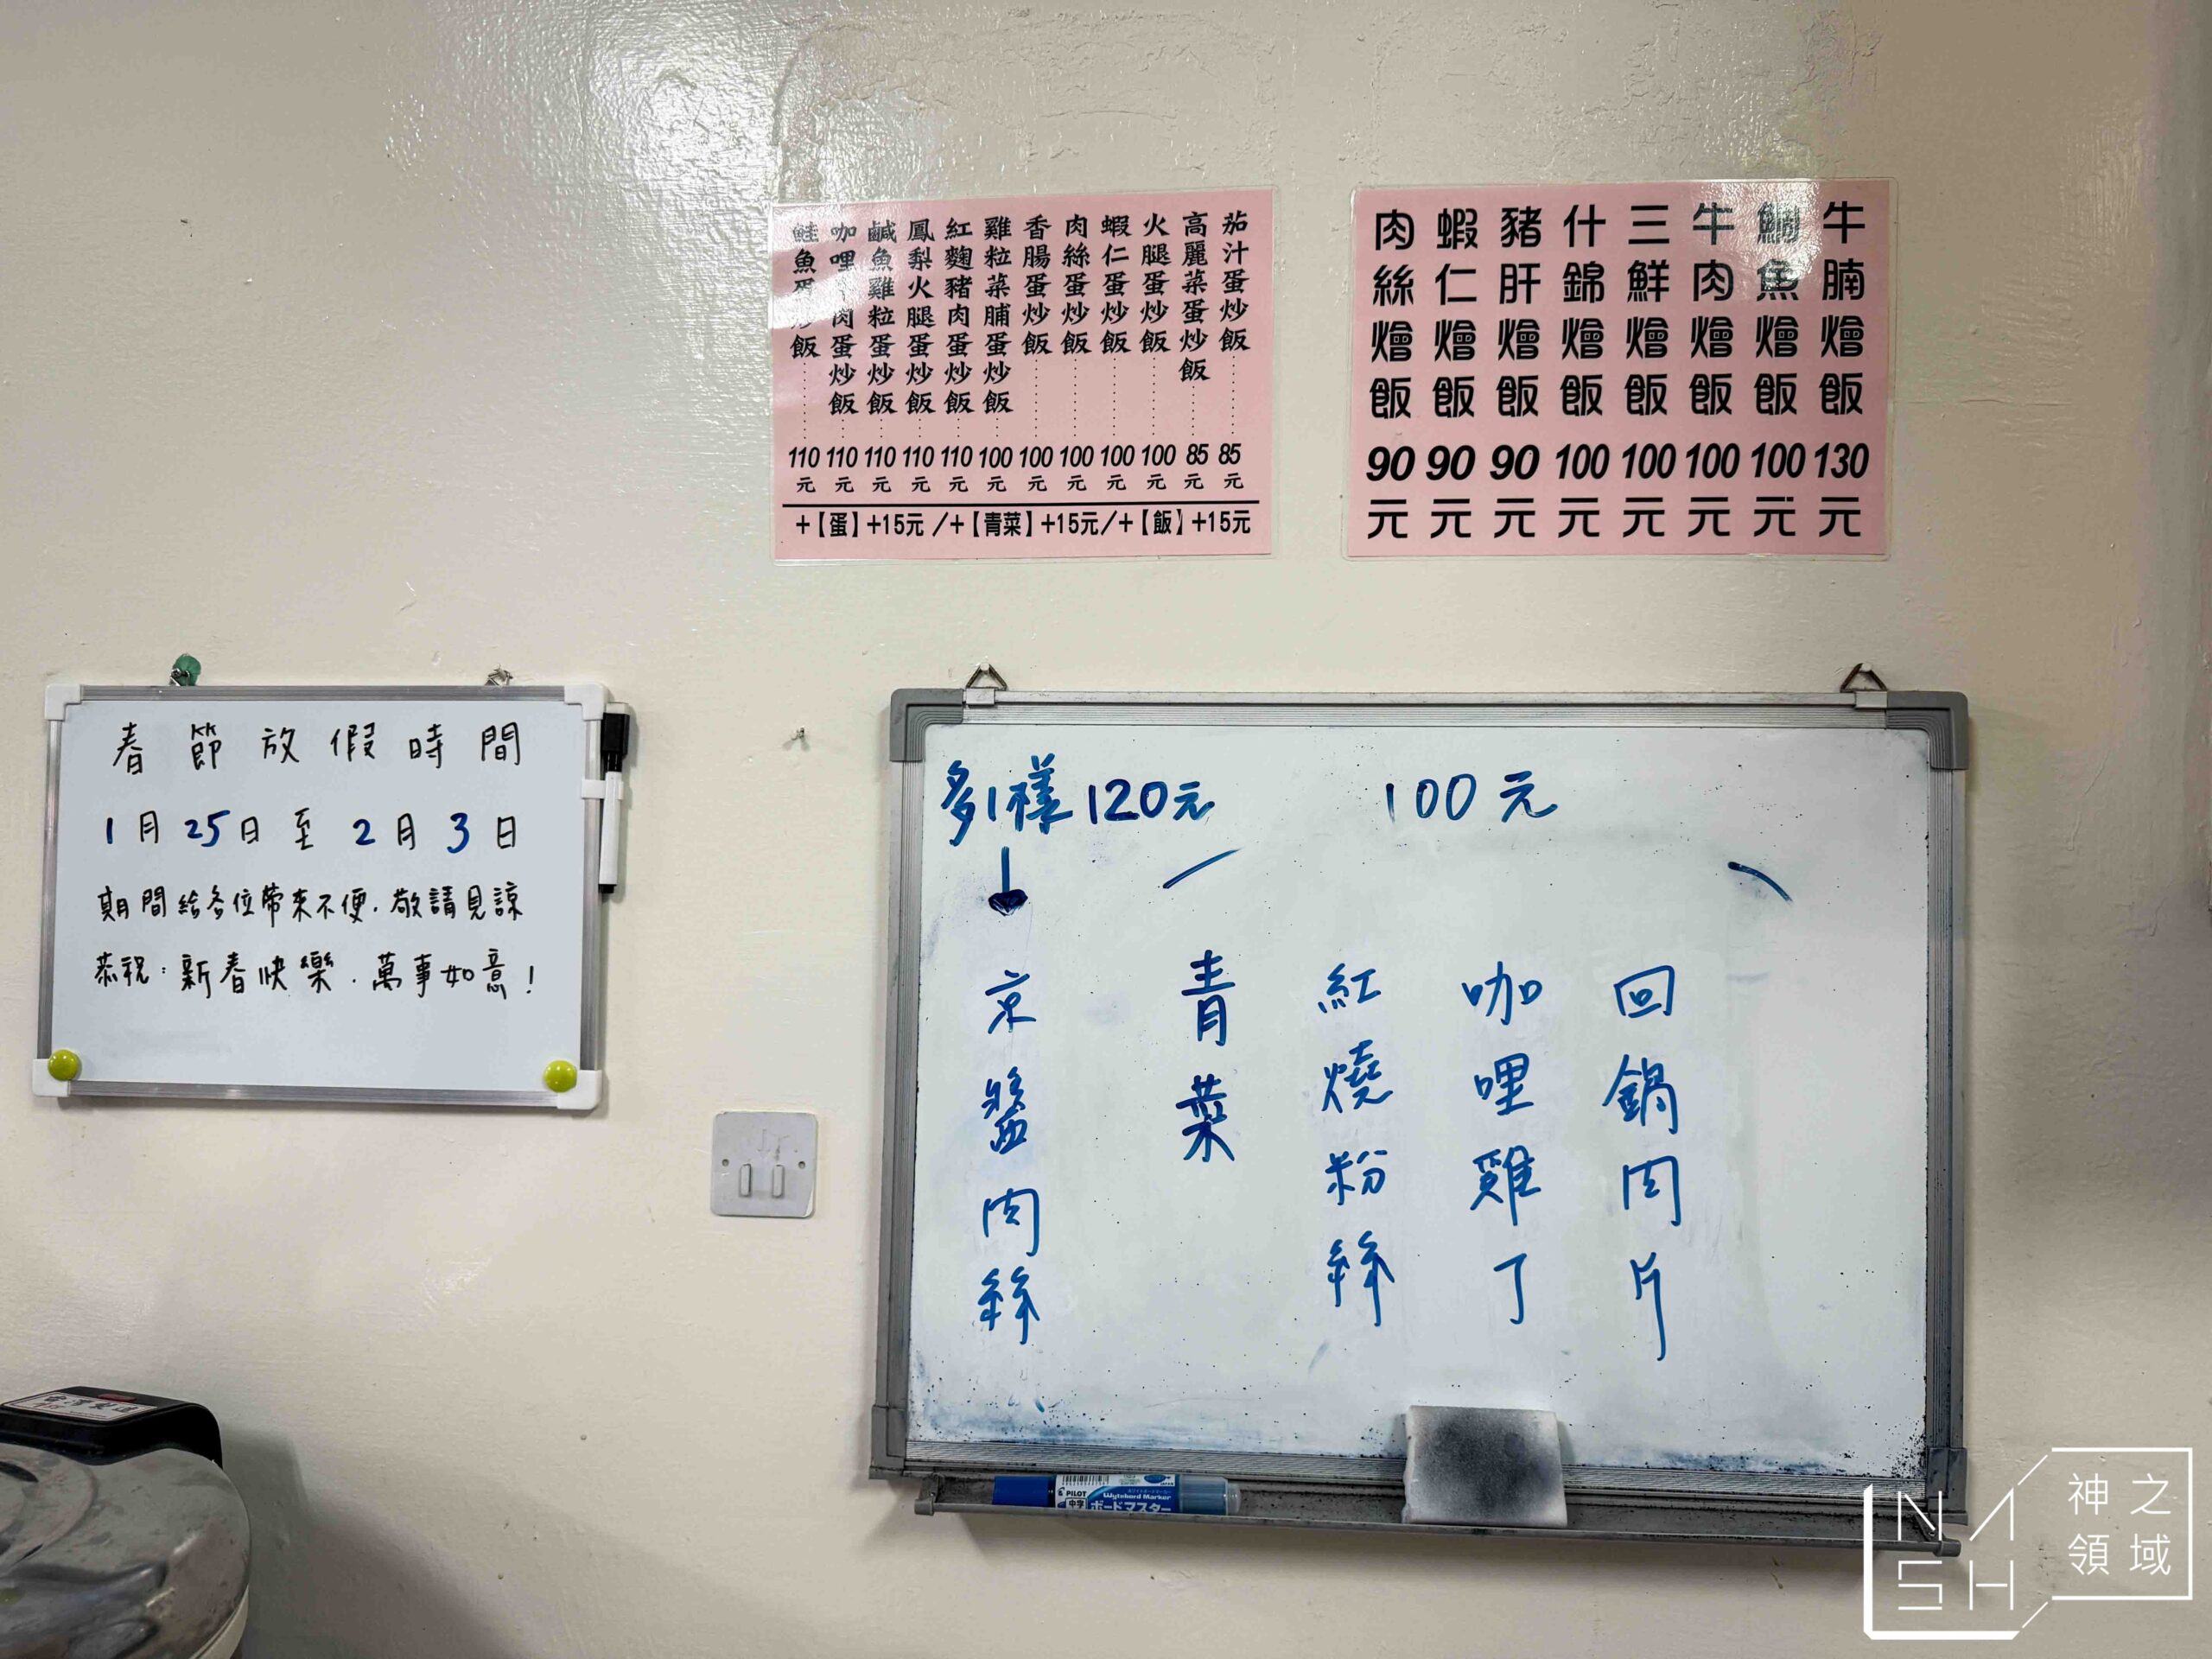 牛腩燴飯 130元
鯛魚燴飯 100元
牛肉燴飯 100元
三鮮燴飯 100元
什錦燴飯 100元
豬肝燴飯 90元
蝦仁燴飯 90元
肉絲燴飯 90元
茄汁蛋炒飯 85元
高麗菜蛋炒飯 85元
火腿蛋炒飯 100元
蝦仁蛋炒飯 100元
肉絲蛋炒飯 100元
香腸蛋炒飯 100元
雞粒菜脯蛋炒飯 100元
紅麴豬肉蛋炒飯 110元
鳳梨火腿蛋炒飯 110元
鹹魚雞粒蛋炒飯 110元
咖哩牛肉蛋炒飯 110元
鮭魚蛋炒飯 110元
+【蛋】+15元/+【青菜】+15元/+【飯】+15元
春節放假時間
1月25日至2月3日
期間給各位帶來不便.敬請見諒
恭祝:新春快樂.萬事如意!
多1樣120元
100元
回鍋肉片
咖哩雞丁
紅燒粉絲
青菜
京醬肉絲
PILOT
中字
Wytebord Marker
ボードマスター
NASH
神之
領域